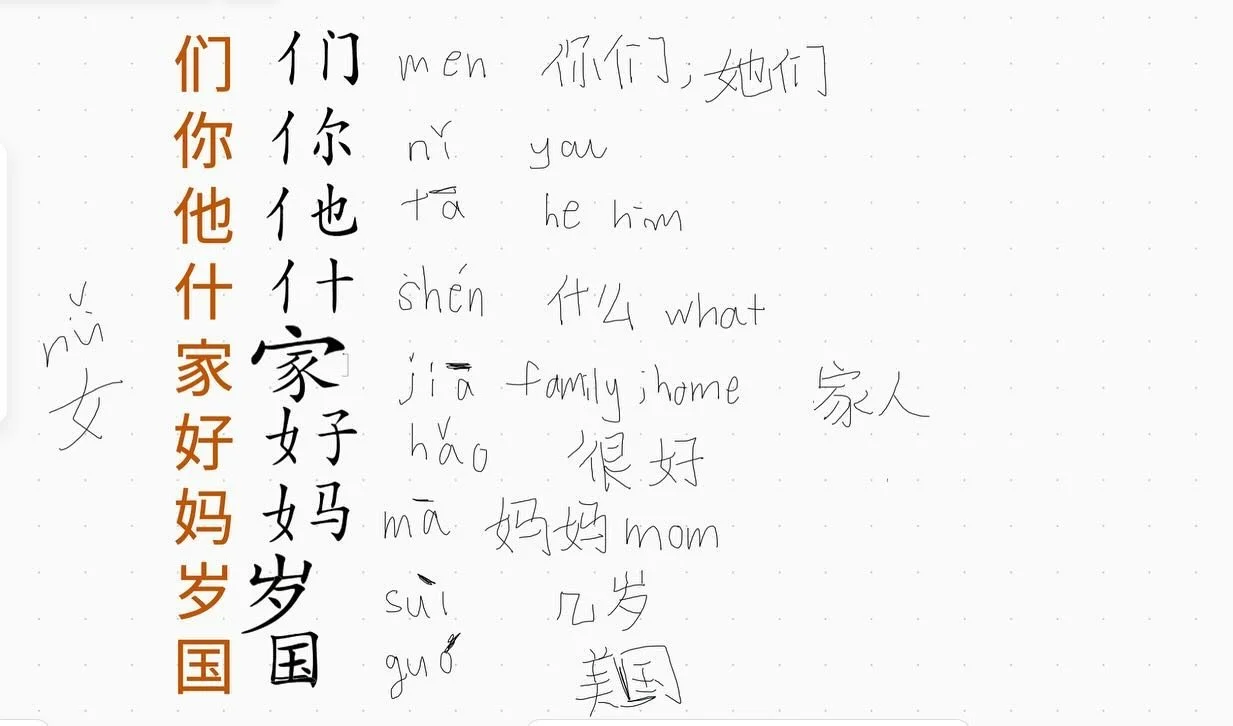 们 们 men 你们; 她们
你 你 nǐ you
他 他 tā he him
什 什 shén 什么 what
nǚ
家 家 jiā family; home 家人
女
好 好 hǎo 很好
妈 妈 mā 妈妈 mom
岁 岁 suì 几岁
国 国 guó 美国